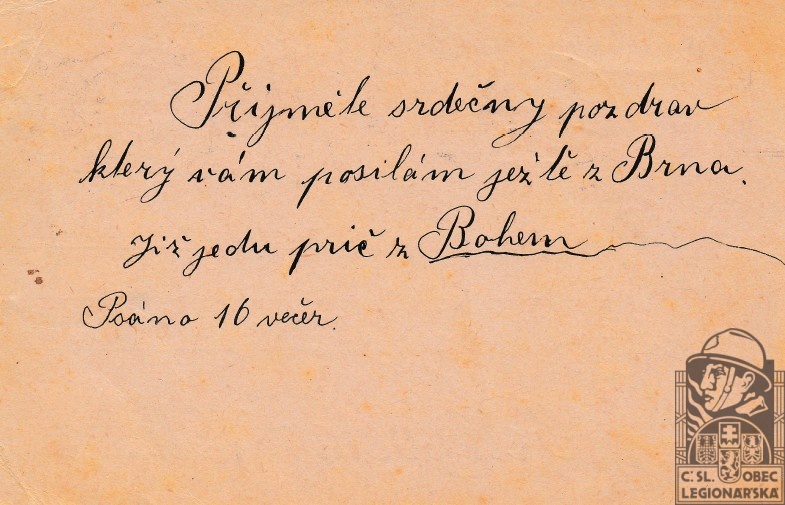 Přijměte srdečný pozdrav
který vám posílám ježtě z Brna.
Již jedu prič z Bohem
Psáno 16 večer.
Č.SL. OBEC
LEGIONÁŘSKÁ